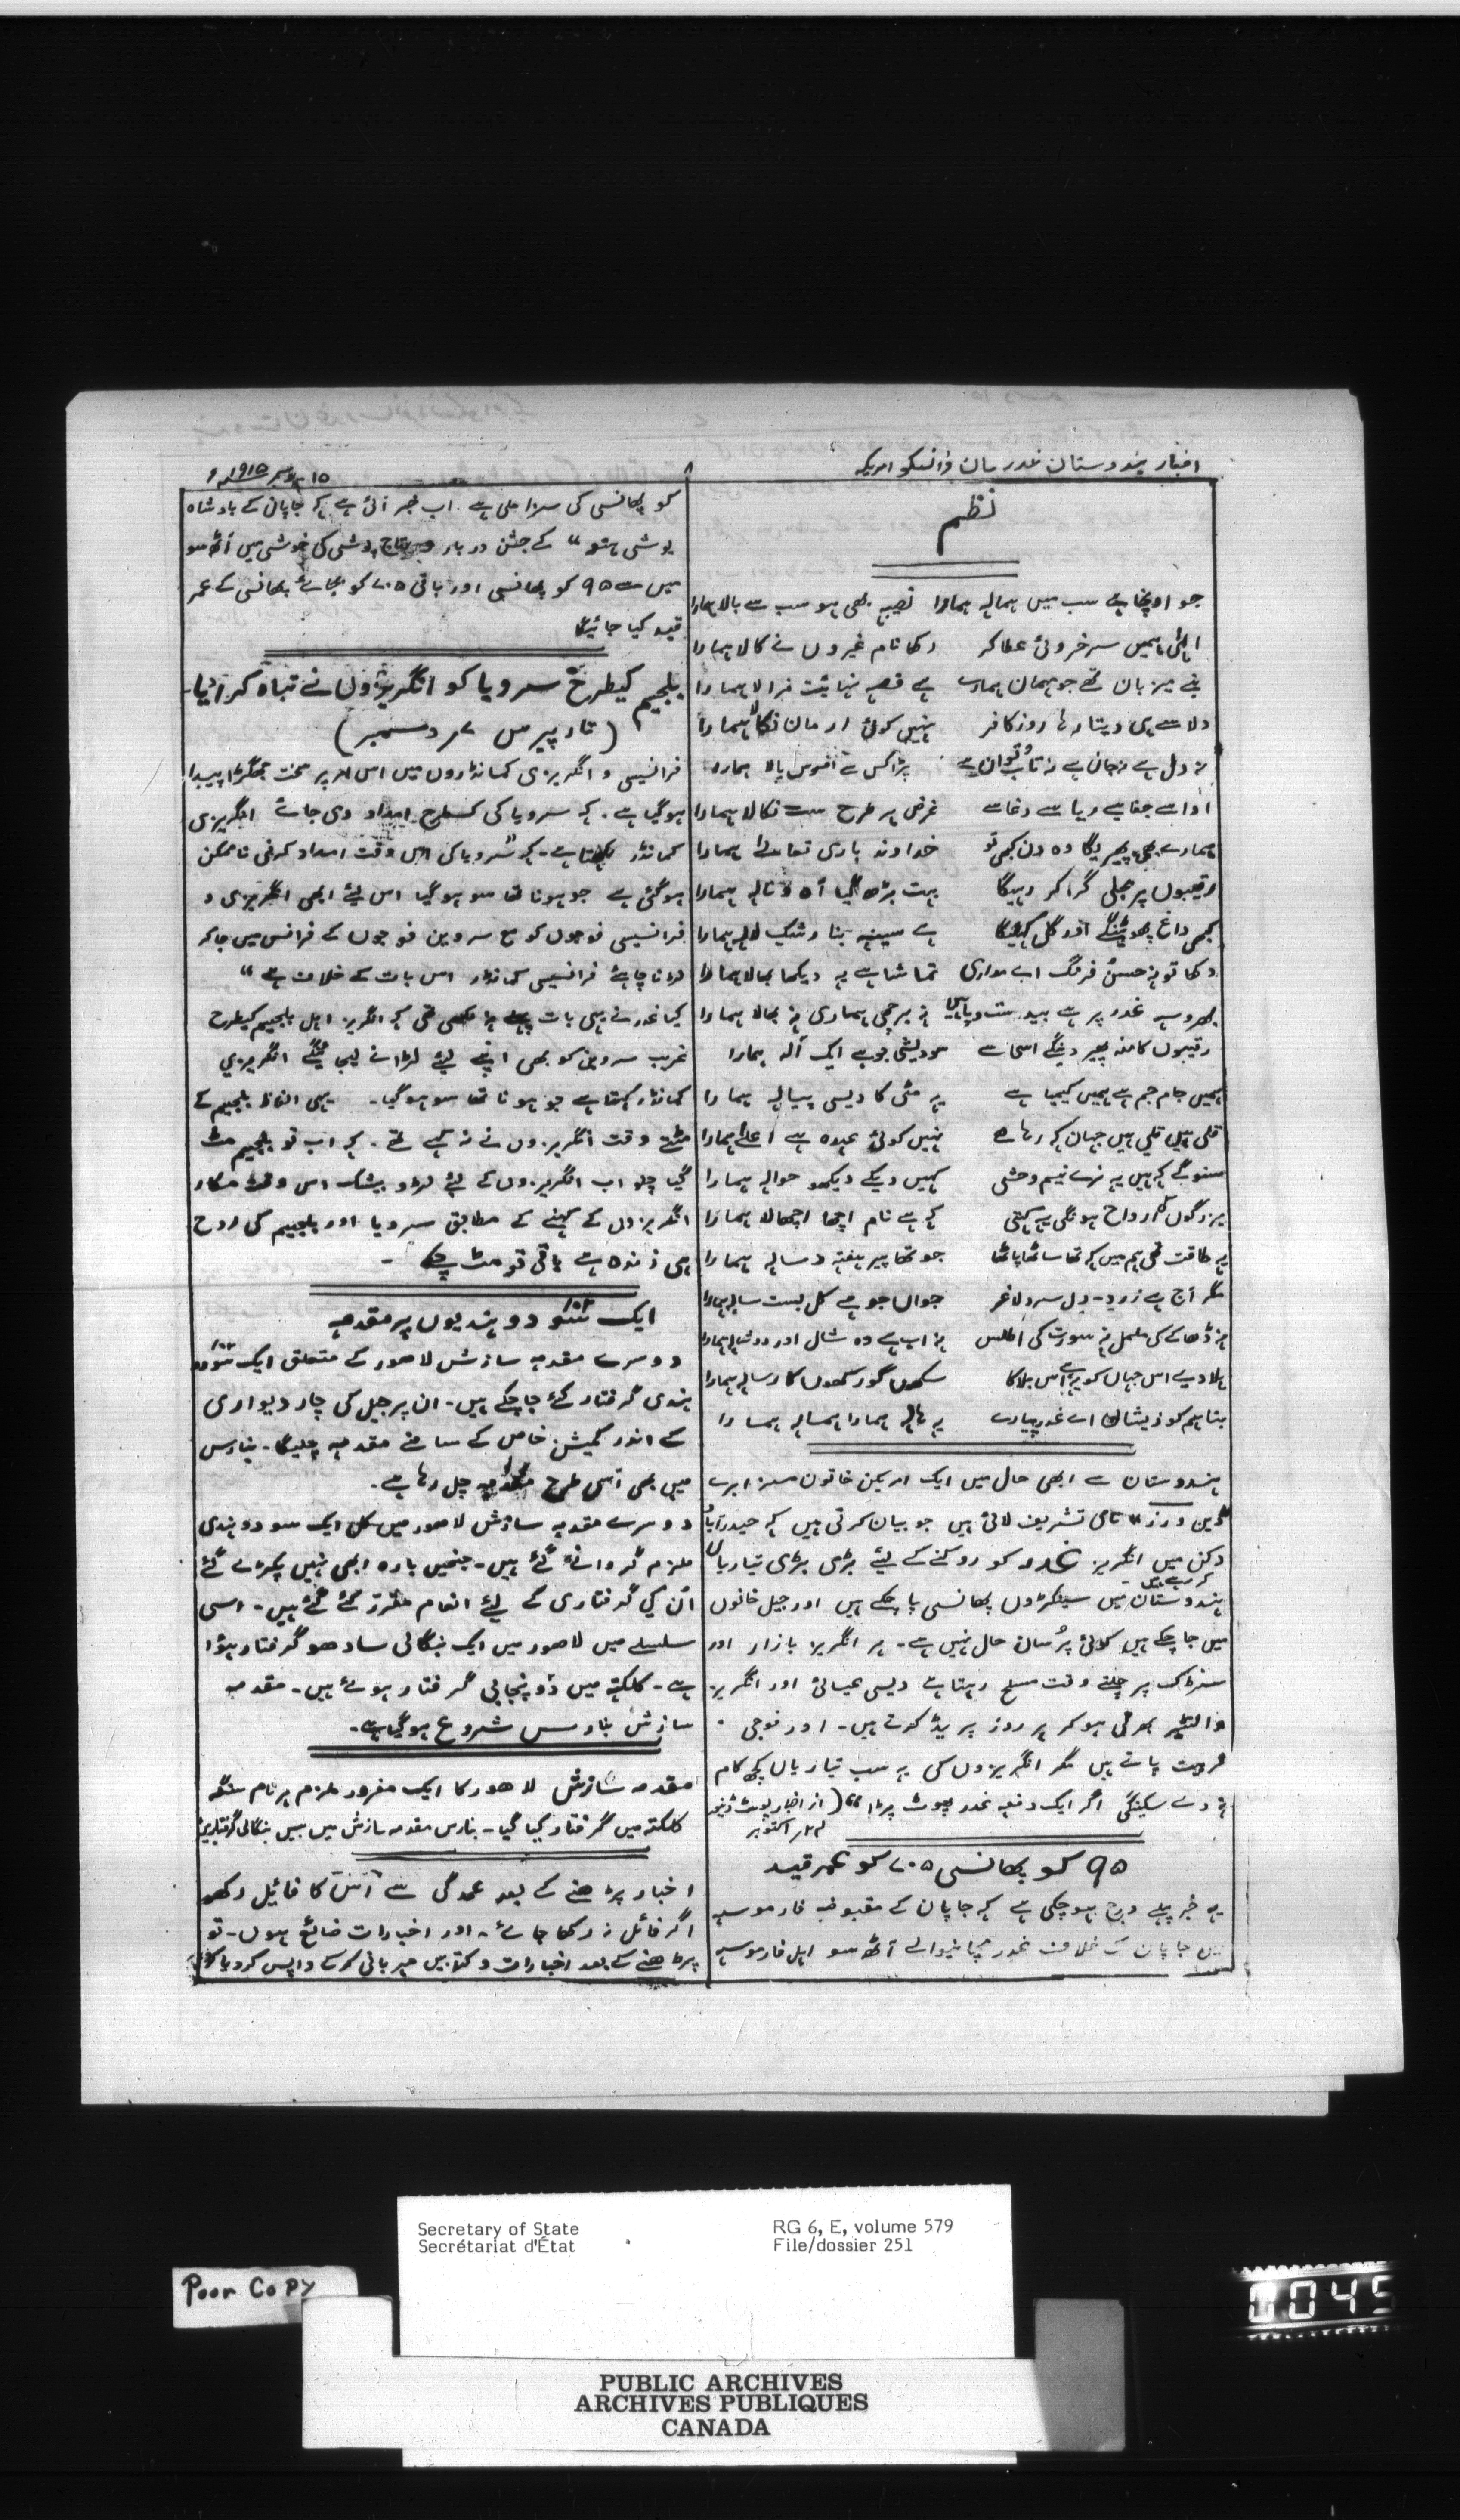 اخبار ہندوستان غدر سان فرانسسکو امریکہ
۸
۱۵ دسمبر ۱۹۱۵ء
نظم
جو اونچا ہے سب میں ہمالہ ہمارا نصیبہ بھی ہو سب سے بالا ہمارا
الٰہی ہمیں سرخروئی عطا کر رکھا نام غیروں نے کالا ہمارا
بنے میزبان تھے جو مہمان ہمارے ہے قصہ نہائت نرالا ہمارا
دلاسے ہی دیتا رہا روز کافر نہیں کوئی ارمان نکالا ہمارا
نہ دل ہے نہ جان ہے نہ تاب و توان ہے پڑا کس سے افسوس پالا ہمارا
ادا سے جفا سے ریا سے دغا سے غرض ہر طرح سے نکالا ہمارا
ہمارے بھی پھیریگا وہ دن کبھی تو خداوند باری تعالےٰ ہمارا
رقیبوں پر بجلی گرا کر رہیگا بہت بڑھ گیا آہ و نالہ ہمارا
کبھی داغ پھوٹینگے اور گل کھلیگا ہے سینہ بنا رشک لالہ ہمارا
دکھا تو نہ حسن فرنگ اے مداری تماشا ہے یہ دیکھا بھالا ہمارا
بھروسہ غدر پر ہے بیدست و پا ہیں نہ برچھی ہماری نہ بھالا ہمارا
رقیبوں کا منہ پھیر دینگے اسی سے سودیشی جو ہے ایک آلہ ہمارا
ہمیں جام جم ہے ہمیں کیمیا ہے یہ مٹی کا دیسی پیالہ ہمارا
قلی ہیں قلی ہیں جہان کہ رہا ہے نہیں کوئی عہدہ ہے اعلےٰ ہمارا
سنوگے کہ ہیں یہ نرے نیم وحشی کہیں دیکے دیکھو حوالہ ہمارا
بزرگوں کی ارواح ہونگی یہ کہتی کہ ہے نام اچھا اچھالا ہمارا
یہ طاقت تھی ہم میں کہ تھا ساٹھا پاٹھا جو تھا پیر ہفتہ دسالہ ہمارا
مگر آج ہے زرد۔ دل سرد لاغر جواں جو ہے کل بست سالہ ہمارا
نہ ڈھاکے کی ململ نہ سورت کی اطلس نہ اب ہے وہ شال اور دوشالہ ہمارا
ہلا دے اس جہاں کو یہ ہے اس بلا کا سکھوں گورکھوں کا رسالہ ہمارا
بتا ہم کو ذیشان اے غدر پیارے یہ ہالہ ہمارا ہمالہ ہمارا
ہندوستان سے ابھی حال میں ایک امریکن خاتون مسز ایرے
نامی تشریف لائی ہیں جو بیان کرتی ہیں کہ حیدرآباد
دکن میں انگریز غدر کو روکنے کے لئے بڑی بڑی تیاریاں
کر رہے ہیں۔
ہندوستان میں سینکڑوں پھانسی پا چکے ہیں اور جیل خانوں
میں جا چکے ہیں کوئی پُرسان حال نہیں ہے۔ ہر انگریز بازار اور
سنڑک پر چلتے وقت مسلح رہتا ہے دیسی عیسائی اور انگریز
والنٹیر بھرتی ہو کر ہر روز پریڈ کرتے ہیں۔ اور فوجی
تربیت پاتے ہیں مگر انگریزوں کی یہ سب تیاریاں کچھ کام
نہ دے سکینگی اگر ایک دفعہ غدر پھوٹ پڑا“ (از اخبار پوسٹ ڈینور
۲۴ اکتوبر
۹۵ کو پھانسی ۷۰۵ کو عمر قید
یہ خبر پہلے درج ہو چکی ہے کہ جاپان کے مقبوضہ فارموسہ
میں جاپان کے خلاف غدر مچانیوالے آٹھ سو اہل فارموسہ
کو پھانسی کی سزا ملی ہے۔ اب خبر آئی ہے کہ جاپان کے بادشاہ
یوشی ہتو“ کے جشن دربار تاج پوشی کی خوشی میں آٹھ سو
میں سے ۹۵ کو پھانسی اور باقی ۷۰۵ کو بجائے پھانسی کے عمر
قید کیا جائیگا
بلجیم کیطرح سرویا کو انگریزوں نے تباہ کرا دیا۔
(تار پیرس ۷؍ دسمبر)
فرانسیسی و انگریزی کمانڈروں میں اس امر پر سخت جھگڑا پیدا
ہوگیا ہے۔ کہ سرویا کی کسطرح امداد دی جائے انگریزی
کمانڈر کہتا ہے۔ کہ ”سرویا کی اس وقت امداد کرنی ناممکن
ہوگئی ہے جو ہونا تھا سو ہوگیا اس لئے ابھی انگریزی و
فرانسیسی فوجوں کو مع سروین فوجوں کے فرانس میں جا کر
لڑنا چاہئے فرانسیسی کمانڈر اس بات کے خلاف ہے“
کیا غدر نے یہی بات پہلے نہ لکھی تھی کہ انگریز اہل بلجیم کیطرح
غریب سروین کو بھی اپنے لئے لڑانے لیجائینگے انگریزی
کمانڈر کہتا ہے جو ہونا تھا سو ہوگیا۔ یہی الفاظ بلجیم کے
مٹتے وقت انگریزوں نے نہ کہے تھے۔ کہ اب تو بلجیم مٹ
گیا چلو اب انگریزوں کے لئے لڑو بیشک اس وقت مکار
انگریزوں کے کہنے کے مطابق سرویا اور بلجیم کی روح
ہی زندہ ہے باقی تو مٹ چکے۔
ایک سو دو ہندیوں پر مقدمہ
۱۰۲
دوسرے مقدمہ سازش لاہور کے متعلق ایک سو دو
۱۰۲
ہندی گرفتار کئے جا چکے ہیں۔ ان پر جیل کی چار دیواری
کے اندر کمیشن خاص کے سامنے مقدمہ چلیگا۔ بنارس
میں بھی اسی طرح مقدمہ چل رہا ہے۔
دوسرے مقدمہ سازش لاہور میں کل ایک سو دو ہندی
ملزم گردانے گئے ہیں۔ جنمیں بارہ ابھی نہیں پکڑے گئے
اُن کی گرفتاری کے لئے انعام مقرر کئے گئے ہیں۔ اسی
سلسلے میں لاہور میں ایک بنگالی سادھو گرفتار ہؤا
ہے۔ کلکتہ میں دو پنجابی گرفتار ہوئے ہیں۔ مقدمہ
سازش بنارس شروع ہوگیا ہے۔
مقدمہ سازش لاہور کا ایک مفرور ملزم ہرنام سنگھ
کلکتہ میں گرفتار کیا گیا۔ بنارس مقدمہ سازش میں بیس بنگالی گرفتار ہیں
اخبار پڑھنے کے بعد عمدگی سے اس کا فائیل رکھو
اگر فائل نہ رکھا جائے۔ اور اخبارات ضائع ہوں۔ تو
پڑھنے کے بعد اخبارات و کتابیں مہربانی کر کے واپس کر دیا کرو
Secretary of State
Secrétariat d'État
RG 6, E, volume 579
File/dossier 251
Poor Copy
0045
PUBLIC ARCHIVES
ARCHIVES PUBLIQUES
CANADA